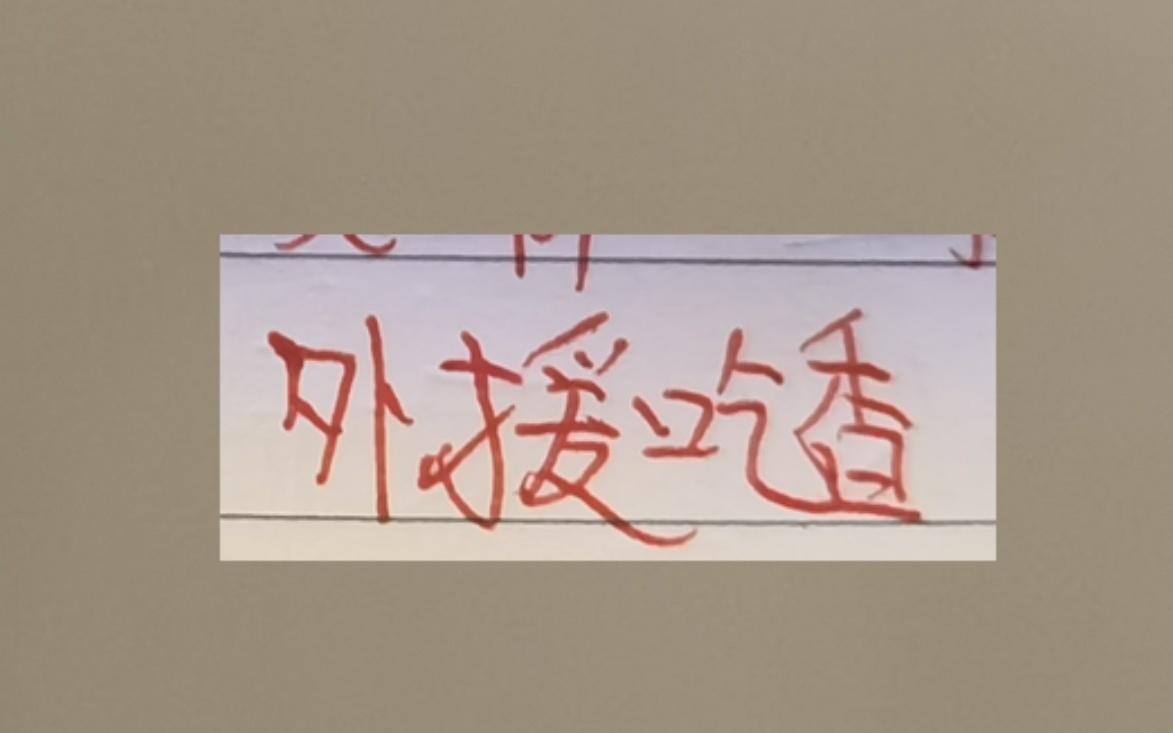 外援吃香